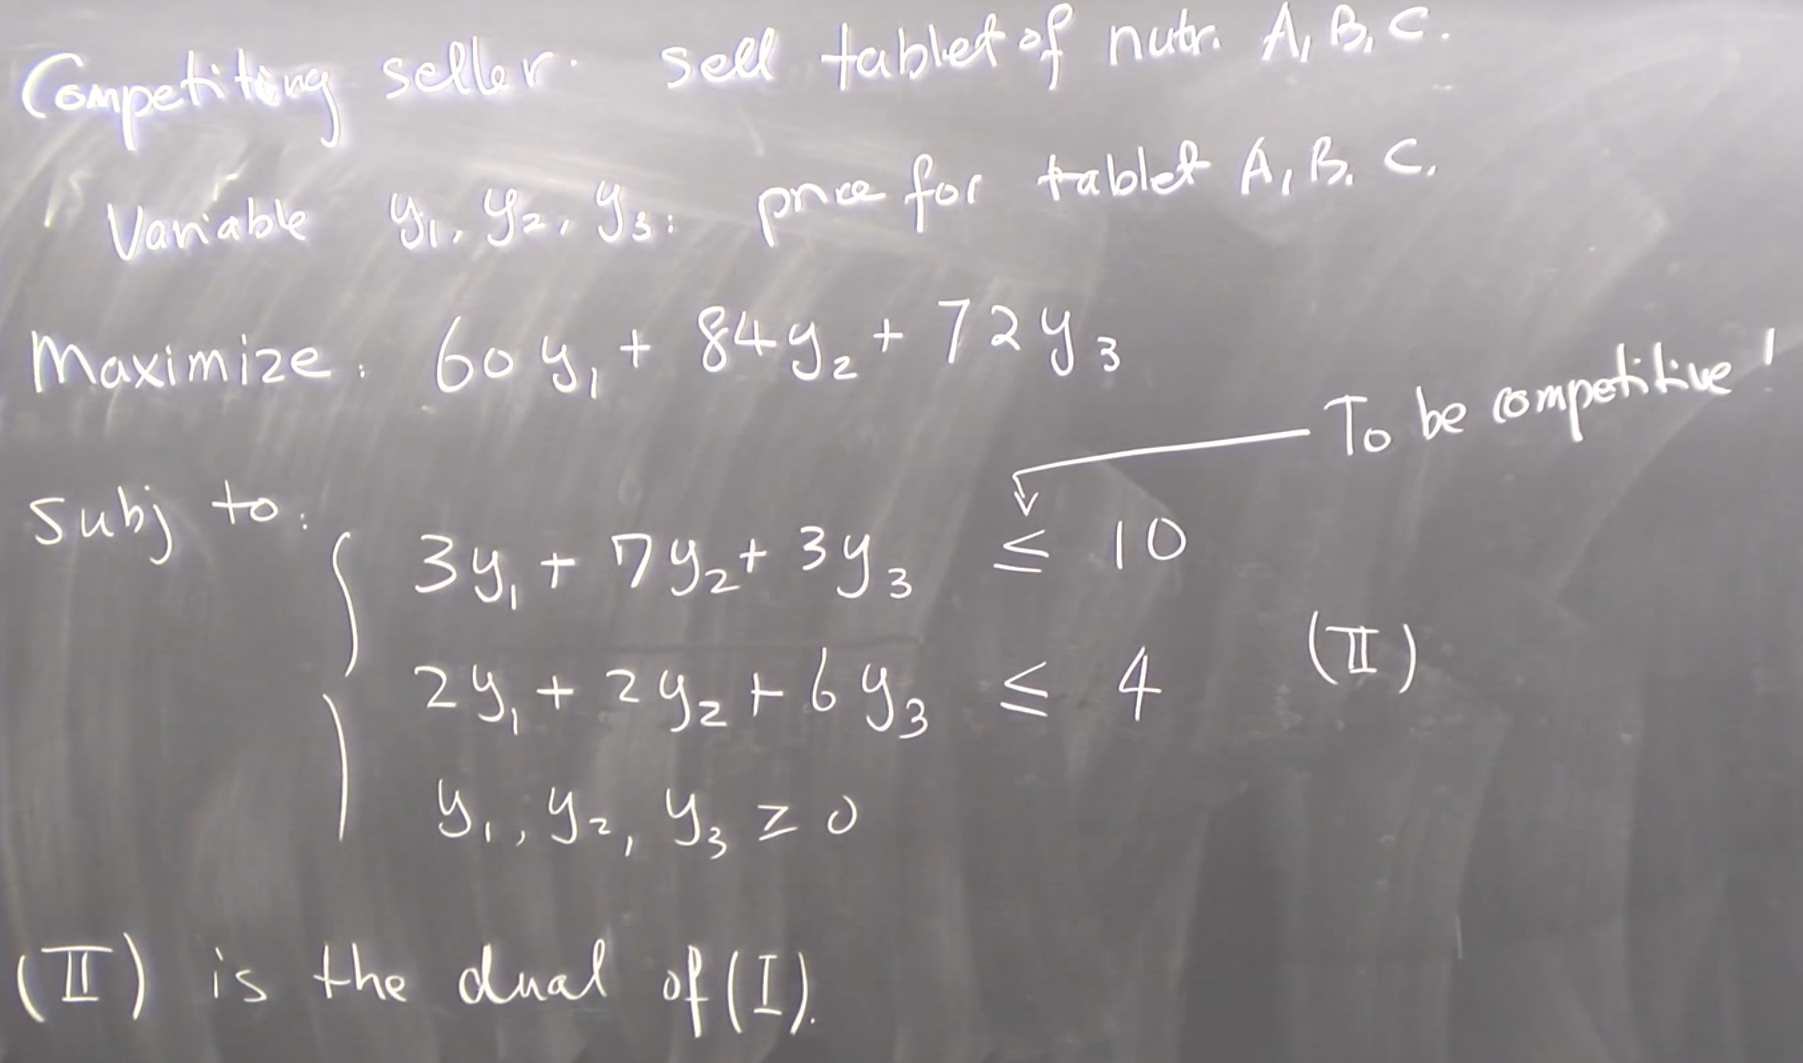 Competiting seller. sell tablet of nutr. A, B, C.
Variable y₁, y₂, y₃: price for tablet A, B, C.
Maximize: 60y₁ + 84y₂ + 72y₃
To be competitive!
Subj to:
3y₁ + 7y₂ + 3y₃ ≤ 10
2y₁ + 2y₂ + 6y₃ ≤ 4 (II)
y₁, y₂, y₃ ≥ 0
(II) is the dual of (I).